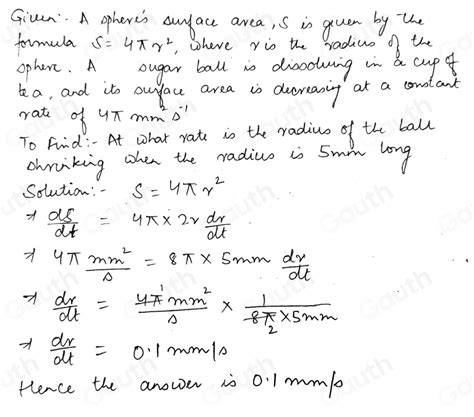 Given:- A sphere's surface area, S is given by the
formula S = 4πr², where r is the radius of the
sphere. A sugar ball is dissolving in a cup of
tea, and its surface area is decreasing at a constant
rate of 4π mm² s⁻¹
To Find:- At what rate is the radius of the ball
shrinking when the radius is 5mm long
Solution:- S = 4πr²
⇒ dS/dt = 4π × 2r dr/dt
⇒ 4π mm²/s = 8π × 5mm dr/dt
⇒ dr/dt = 4π¹ mm²/s × 1/(8π₂ × 5mm)
⇒ dr/dt = 0.1 mm/s
Hence the answer is 0.1 mm/s